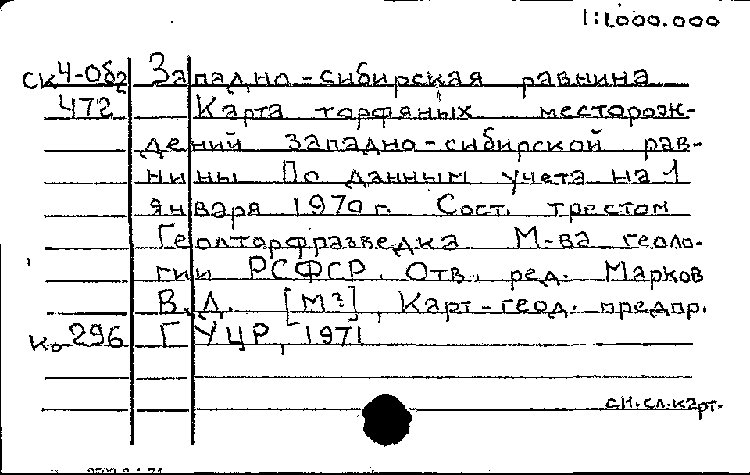 1:1.000.000
СК4-Обг Западно-сибирская равнина
472 Карта торфяных месторож-
дений Западно-сибирской рав-
нины По данным учета на 1
января 1970 г. Сост. трестом
Геолторфразведка М-ва геоло-
гии РСФСР. Отв. ред. Марков
В.Д. [М?], Карт-геод. предпр.
Ко296 ГУЦР, 1971
сн.сл.карт.